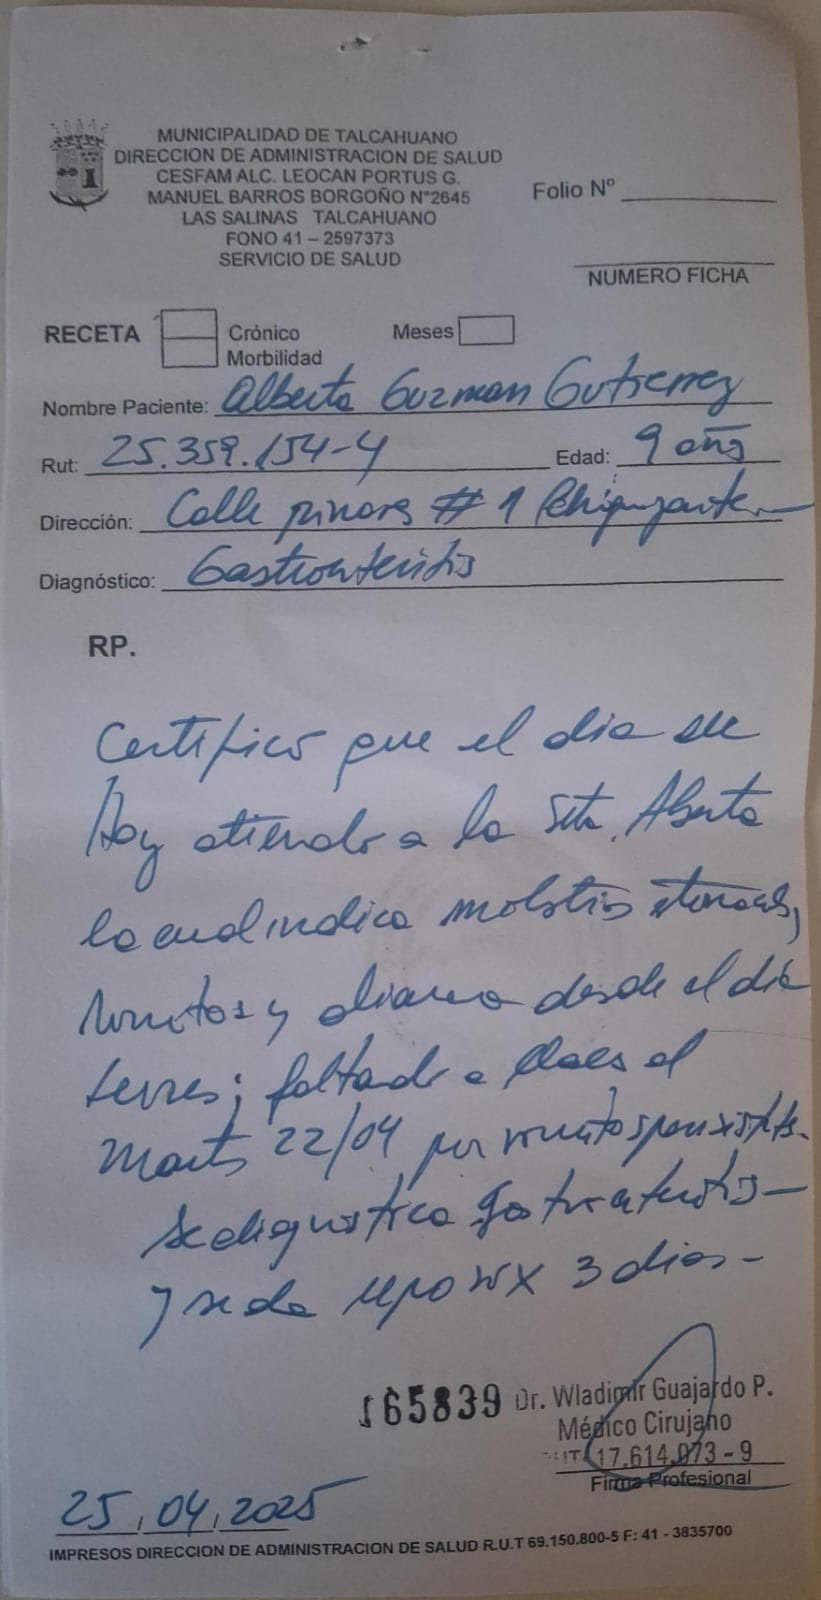 MUNICIPALIDAD DE TALCAHUANO
DIRECCION DE ADMINISTRACION DE SALUD
CESFAM ALC. LEOCAN PORTUS G.
MANUEL BARROS BORGOÑO N°2645
LAS SALINAS TALCAHUANO
FONO 41 – 2597373
SERVICIO DE SALUD
Folio Nº
NUMERO FICHA
RECETA
Crónico
Morbilidad
Meses
Nombre Paciente: Alberta Guzman Gutierrez
Rut: 25.359.154-4
Edad: 9 año
Dirección: Calle # 1
Diagnóstico:
RP.
Certifico que el dia de
Hoy atiendo a la Srta. Alberta
la cual indica
vomitos y diarrea desde el dia
a el
Martes 22/04 por vomitos
Se diagnostica
y se da reposo x 3 dias-
165839 Dr. Wladimir Guajardo P.
Médico Cirujano
17.614.073 - 9
Firma Profesional
25, 04, 2025
IMPRESOS DIRECCION DE ADMINISTRACION DE SALUD R.U.T 69.150.800-5 F: 41 - 3835700